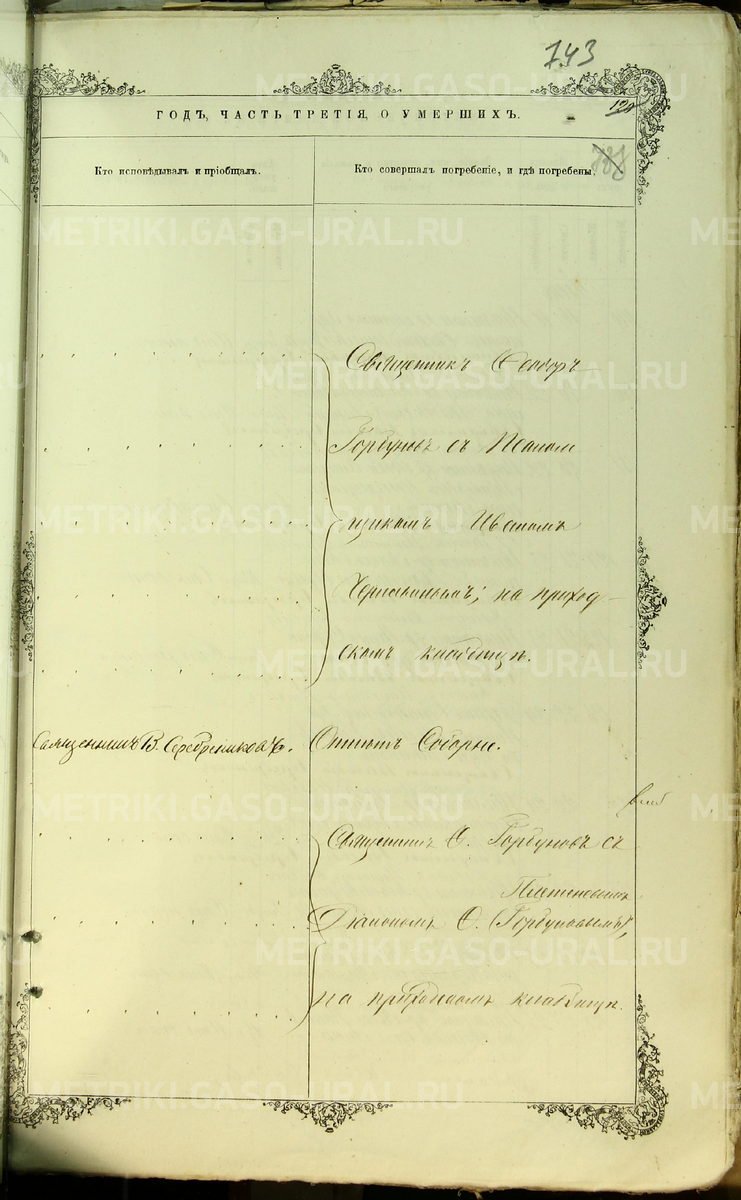 743
120
ГОДЪ, ЧАСТЬ ТРЕТІЯ, О УМЕРШИХЪ.
Кто исповѣдывалъ и пріобщалъ.
Кто совершалъ погребеніе, и гдѣ погребены.
Священникъ Ѳеодоръ
Горбуновъ съ Псалом
щикомъ Иваномъ
на приход-
скомъ кладбищѣ.
Священникъ В. Серебрениковъ.
Отпѣтъ Соборне.
Священникъ Ѳ. Горбуновъ съ
Діакономъ Ѳ. (Горбуновымъ),
на приходскомъ кладбищѣ.
METRIKI.GASO-URAL.RU